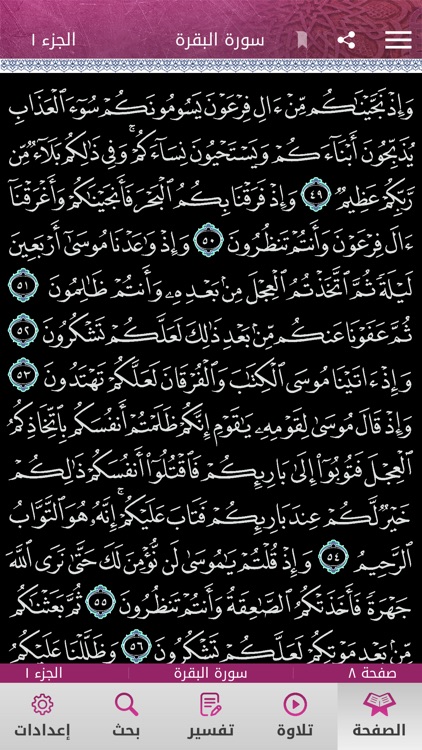 الجزء ١ سورة البقرة
وَإِذْ نَجَّيْنَٰكُم مِّنْ ءَالِ فِرْعَوْنَ يَسُومُونَكُمْ سُوٓءَ ٱلْعَذَابِ
يُذَبِّحُونَ أَبْنَآءَكُمْ وَيَسْتَحْيُونَ نِسَآءَكُمْ ۚ وَفِى ذَٰلِكُم بَلَآءٌ مِّن
رَّبِّكُمْ عَظِيمٌ ٤٩ وَإِذْ فَرَقْنَا بِكُمُ ٱلْبَحْرَ فَأَنجَيْنَٰكُمْ وَأَغْرَقْنَآ
ءَالَ فِرْعَوْنَ وَأَنتُمْ تَنظُرُونَ ٥٠ وَإِذْ وَٰعَدْنَا مُوسَىٰٓ أَرْبَعِينَ
لَيْلَةً ثُمَّ ٱتَّخَذْتُمُ ٱلْعِجْلَ مِنۢ بَعْدِهِۦ وَأَنتُمْ ظَٰلِمُونَ ٥١
ثُمَّ عَفَوْنَا عَنكُم مِّنۢ بَعْدِ ذَٰلِكَ لَعَلَّكُمْ تَشْكُرُونَ ٥٢
وَإِذْ ءَاتَيْنَا مُوسَى ٱلْكِتَٰبَ وَٱلْفُرْقَانَ لَعَلَّكُمْ تَهْتَدُونَ ٥٣
وَإِذْ قَالَ مُوسَىٰ لِقَوْمِهِۦ يَٰقَوْمِ إِنَّكُمْ ظَلَمْتُمْ أَنفُسَكُم بِٱتِّخَاذِكُمُ
ٱلْعِجْلَ فَتُوبُوٓا۟ إِلَىٰ بَارِئِكُمْ فَٱقْتُلُوٓا۟ أَنفُسَكُمْ ذَٰلِكُمْ
خَيْرٌ لَّكُمْ عِندَ بَارِئِكُمْ فَتَابَ عَلَيْكُمْ ۚ إِنَّهُۥ هُوَ ٱلتَّوَّابُ
ٱلرَّحِيمُ ٥٤ وَإِذْ قُلْتُمْ يَٰمُوسَىٰ لَن نُّؤْمِنَ لَكَ حَتَّىٰ نَرَى ٱللَّهَ
جَهْرَةً فَأَخَذَتْكُمُ ٱلصَّٰعِقَةُ وَأَنتُمْ تَنظُرُونَ ٥٥ ثُمَّ بَعَثْنَٰكُم
مِّنۢ بَعْدِ مَوْتِكُمْ لَعَلَّكُمْ تَشْكُرُونَ ٥٦ وَظَلَّلْنَا عَلَيْكُمُ
صفحة ٨ سورة البقرة الجزء ١
الصفحة تلاوة تفسير بحث إعدادات